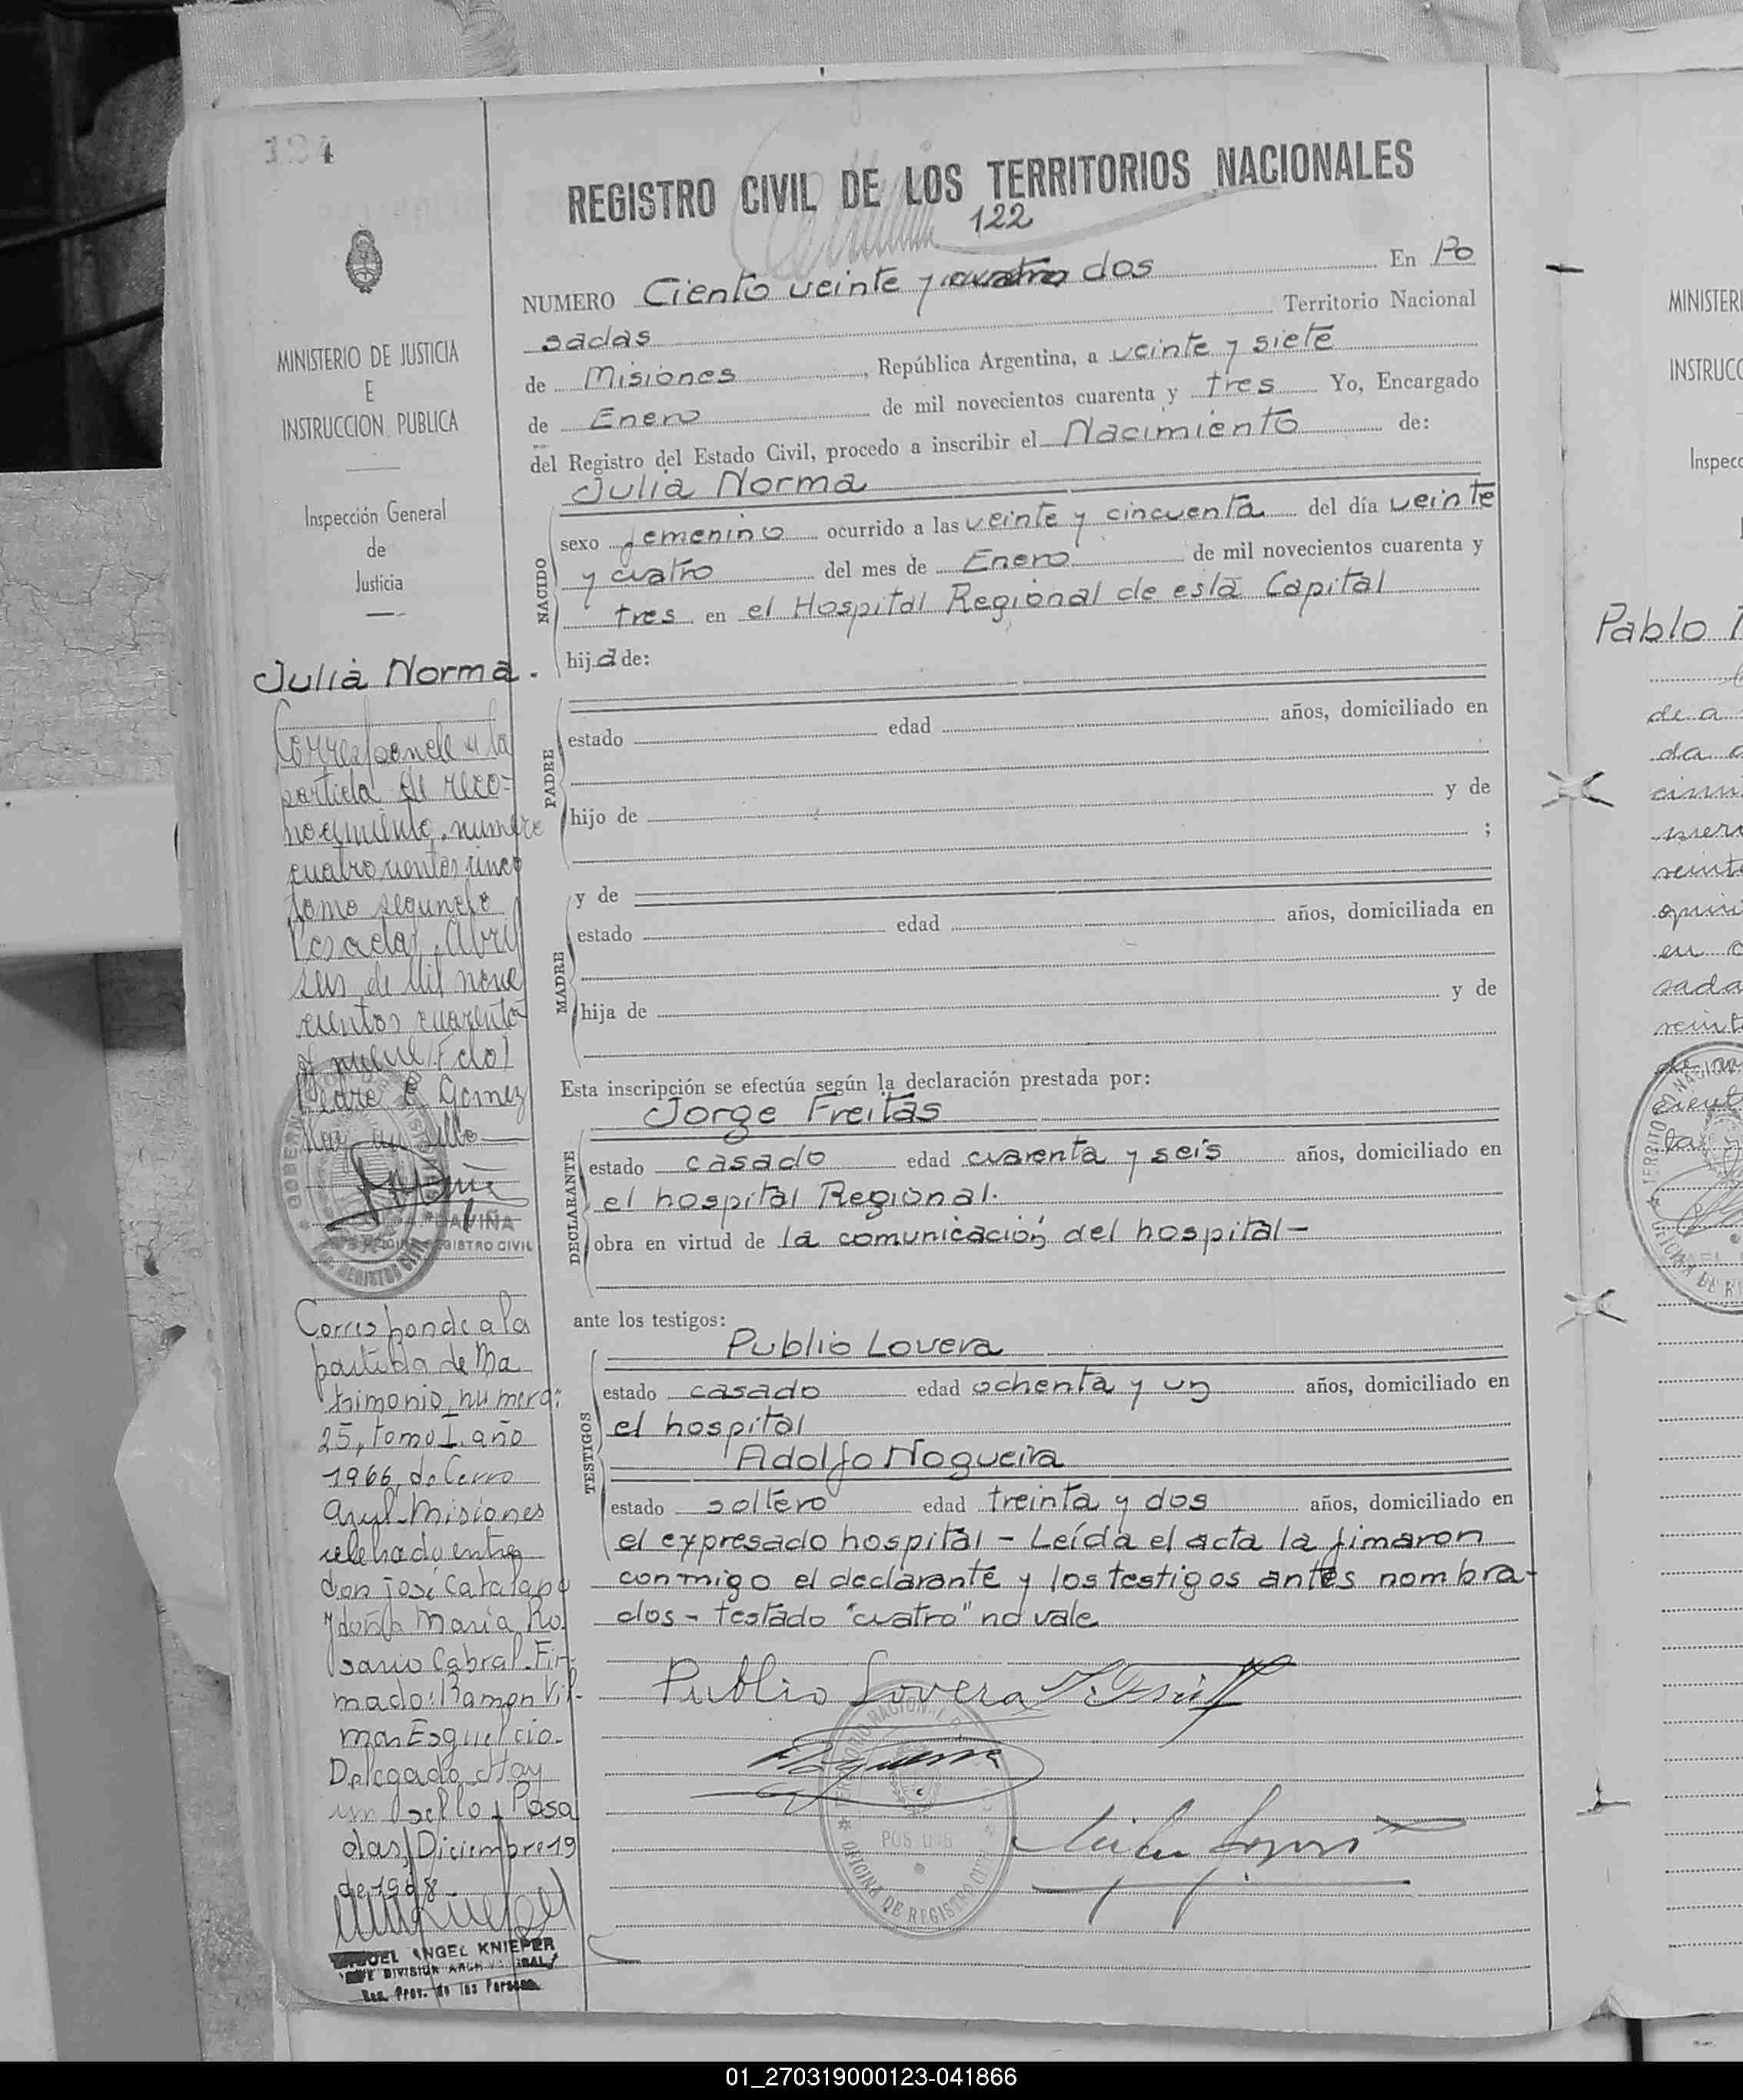 124
REGISTRO CIVIL DE LOS TERRITORIOS NACIONALES
122
NUMERO Ciento veinte y cuatro dos En Po
sadas Territorio Nacional
de Misiones, República Argentina, a veinte y siete
de Enero de mil novecientos cuarenta y tres Yo, Encargado
del Registro del Estado Civil, procedo a inscribir el Nacimiento de:
MINISTERIO DE JUSTICIA
E
INSTRUCCION PUBLICA
Inspección General
de
Justicia
Julia Norma.
Corresponde a la
partida de reco-
nocimiento numero
cuatrocientos cinco
tomo segundo
Posadas, Abril
seis de mil nove
cientos cuarenta
y nueve (Fdo)
Pedro E Gomez
Hay un sello
AVIÑA
REGISTRO CIVIL
Corresponde a la
partida de Ma
trimonio, numero:
25, tomo I. año
1966, de Cerro
Azul-Misiones
celebrado entre
don José Catalano
y doña Maria Ro
sario Cabral. Fir-
mado: Ramon Vil-
mar Esquelcio.
Delegado. Hay
un sello. Posa
das, Diciembre 19
de 1968
ANGEL KNIEPER
JEFE DIVISION ARCH
Reg. Prov. de las Personas
NACIDO
Julia Norma
sexo femenino ocurrido a las veinte y cincuenta del día veinte
y cuatro del mes de Enero de mil novecientos cuarenta y
tres en el Hospital Regional de esta Capital
hij a de:
PADRE
estado edad años, domiciliado en
hijo de y de
;
MADRE
y de
estado edad años, domiciliada en
hija de y de
Esta inscripción se efectúa según la declaración prestada por:
DECLARANTE
Jorge Freitas
estado casado edad cuarenta y seis años, domiciliado en
el hospital Regional.
obra en virtud de la comunicación del hospital-
ante los testigos:
TESTIGOS
Publio Lovera
estado casado edad ochenta y un años, domiciliado en
el hospital
Adolfo Nogueira
estado soltero edad treinta y dos años, domiciliado en
el expresado hospital - Leída el acta la fimaron
conmigo el declarante y los testigos antes nombra-
dos - testado "cuatro" no vale
Publio Lovera
TERRITORIO NACIONAL
POSADAS
OFICINA DE REGISTRO CIVIL
MINISTERI
INSTRUCC
Inspecc
Pablo
de a
da
en
sada
01_270319000123-041866